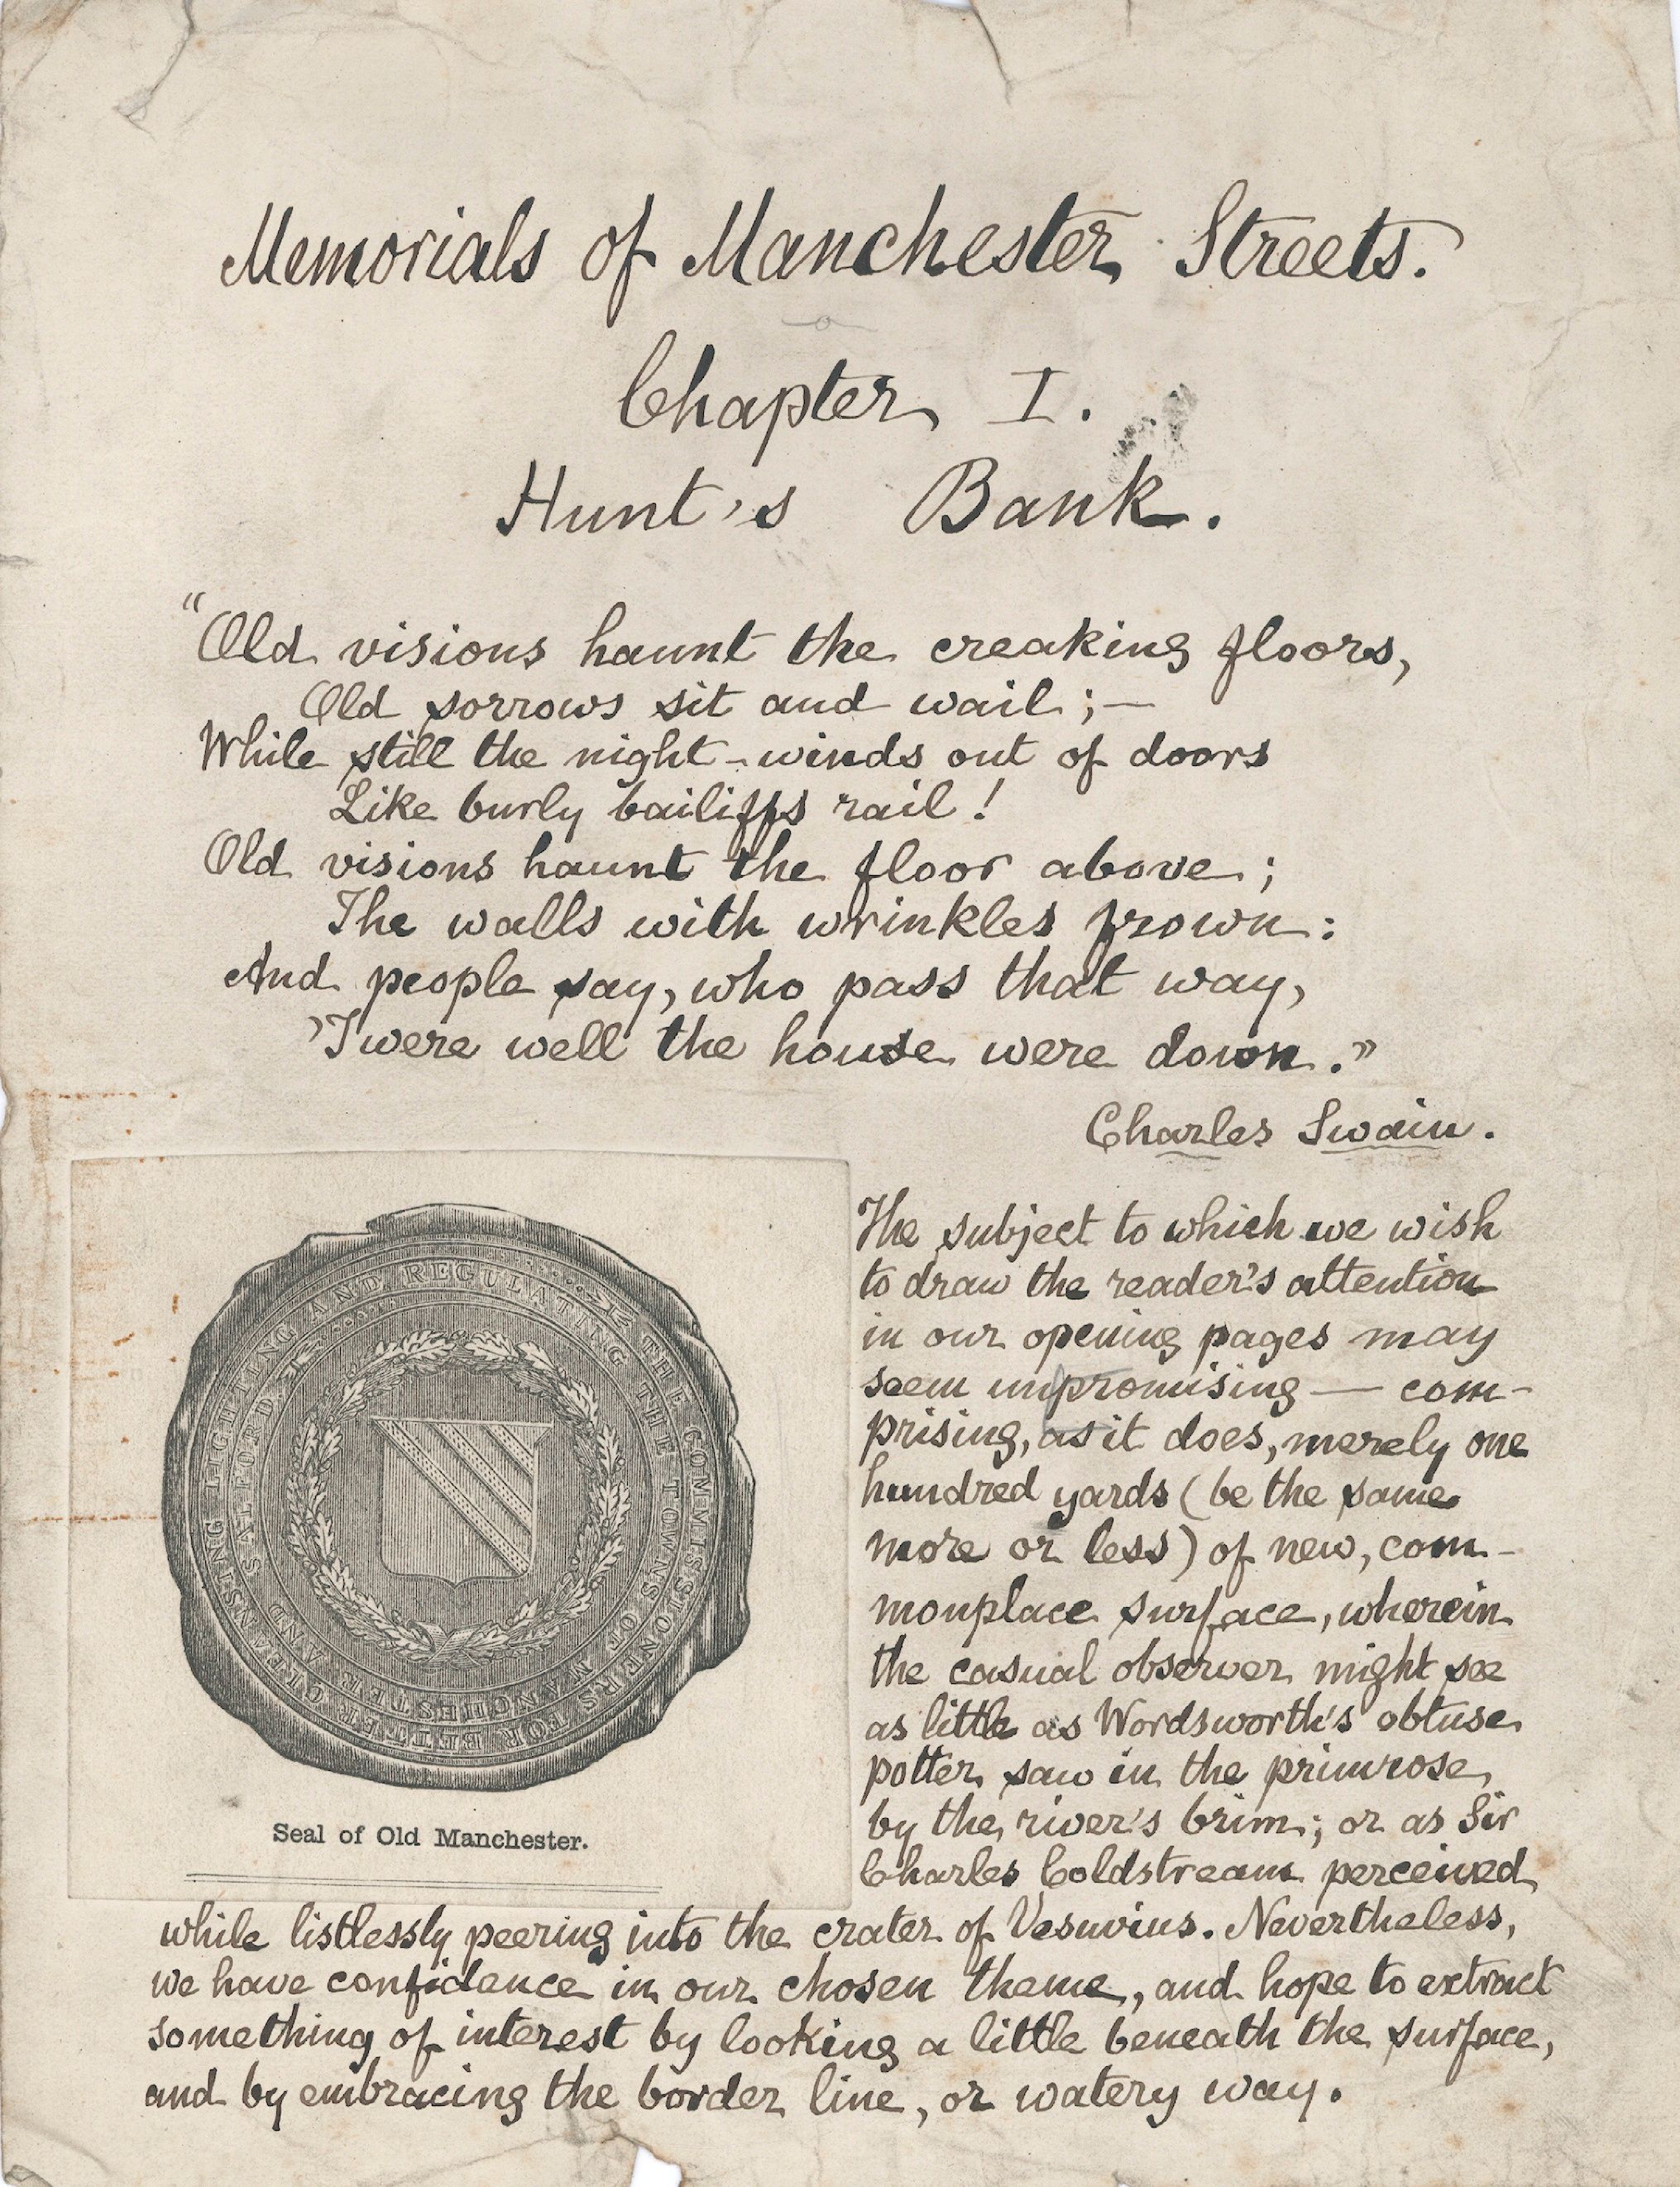 Memorials of Manchester Streets.
Chapter I.
Hunt's Bank.
"Old visions haunt the creaking floors,
Old sorrows sit and wail; —
While still the night-winds out of doors
Like burly bailiffs rail!
Old visions haunt the floor above;
The walls with wrinkles frown:
And people say, who pass that way,
'Twere well the house were down."
Charles Swain.
CLEANSING LIGHTING AND REGULATING THE TOWNS OF MANCHESTER AND SALFORD
THE COMMISSIONERS FOR BETTER
Seal of Old Manchester.
The subject to which we wish
to draw the reader's attention
in our opening pages may
seem unpromising — com-
prising, as it does, merely one
hundred yards (be the same
more or less) of new, com-
monplace surface, wherein
the casual observer might see
as little as Wordsworth's obtuse
potter saw in the primrose
by the river's brim; or as Sir
Charles Coldstream perceived
while listlessly peering into the crater of Vesuvius. Nevertheless,
we have confidence in our chosen theme, and hope to extract
something of interest by looking a little beneath the surface,
and by embracing the border line, or watery way.